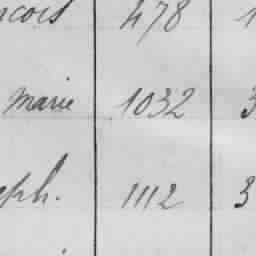 ncois 478 1
marie 1032 3
eph. 1112 3